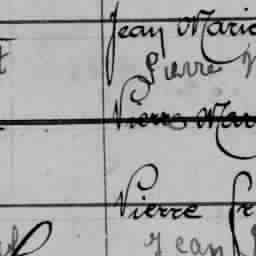 Jean Marie
Pierre
Pierre Mar
Pierre Fr
Jean